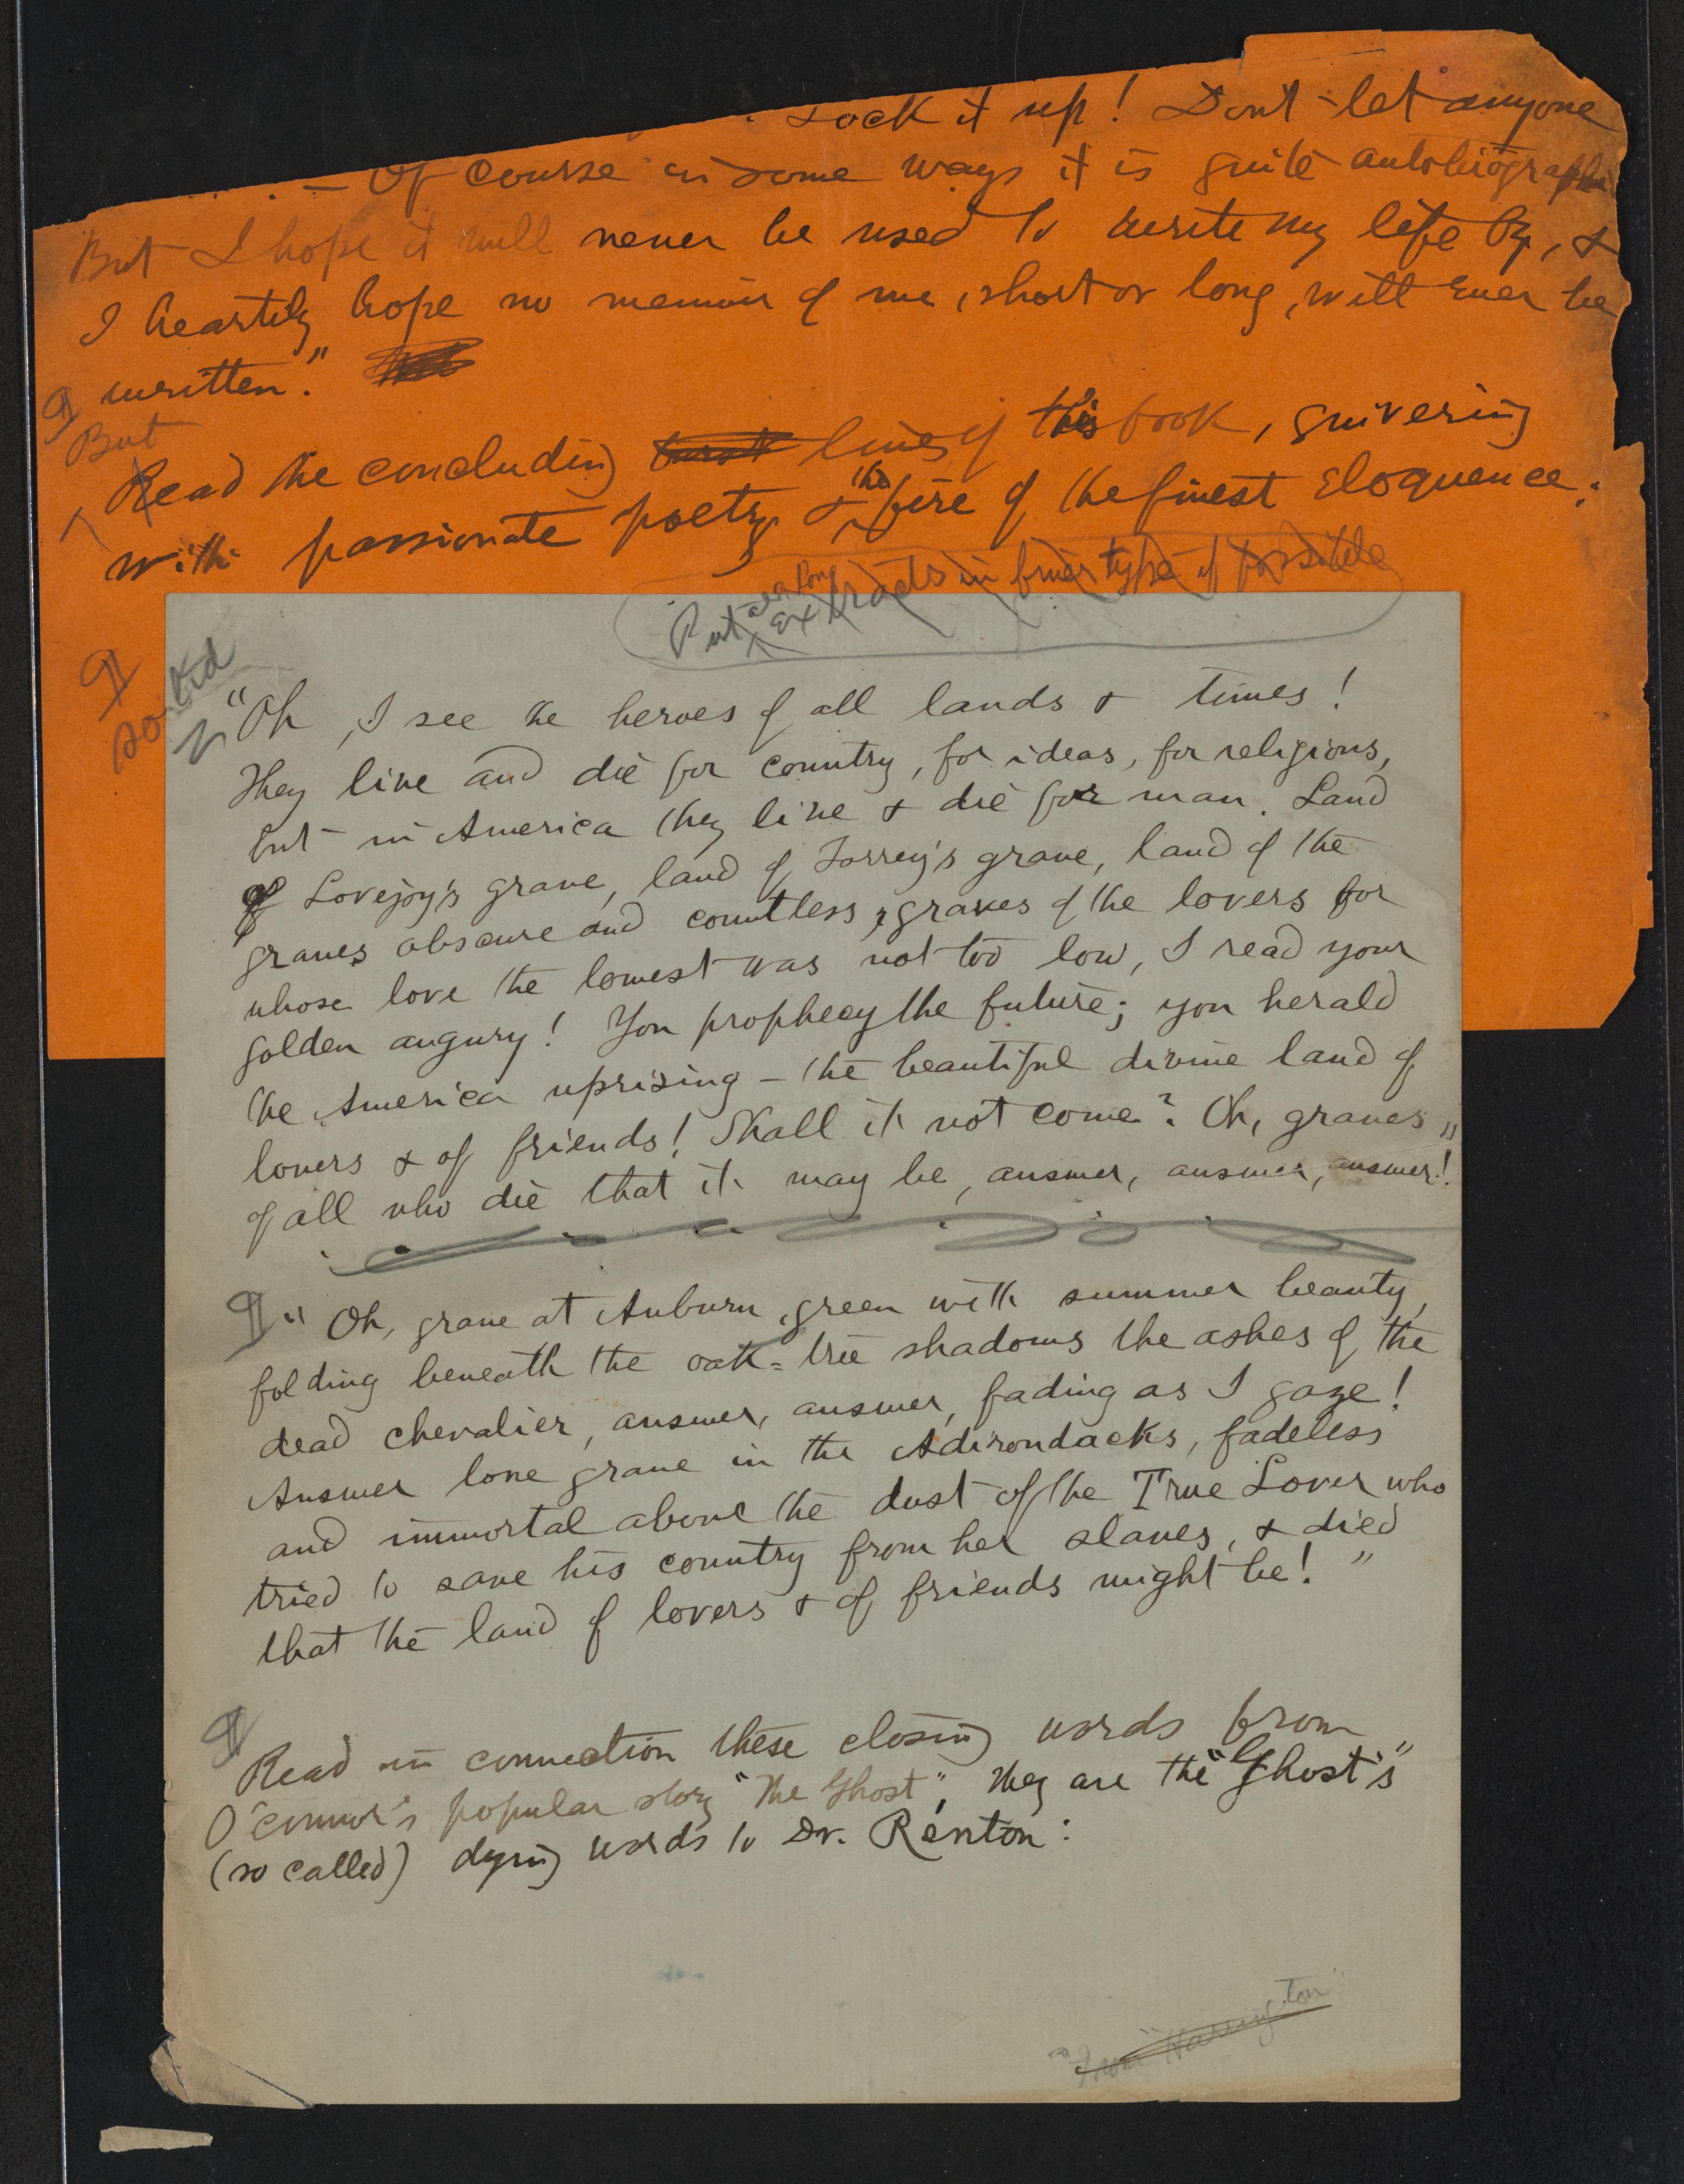 Lock it up! Don't let anyone
— Of course in some ways it is quite autobiographi
But I hope it will never be used to write my life by, &
I heartily hope no memoir of me, short or long, will ever be
written."
¶ But
Read the concluding burst lines of this book, quivering
with passionate poetry & the fire of the finest eloquence:
Put all long extracts in finer type if possible
¶ solid
"Oh, I see the heroes of all lands & times!
They live and die for country, for ideas, for religions,
but in America they live & die for man. Land
of Lovejoy's grave, land of Torrey's grave, land of the
graves obscure and countless, graves of the lovers for
whose love the lowest was not too low, I read your
golden augury! You prophecy the future; you herald
the America uprising — the beautiful divine land of
lovers & of friends! Shall it not come? Oh, graves
of all who die that it may be, answer, answer, answer!"
¶ "Oh, grave at Auburn, green with summer beauty,
folding beneath the oak-tree shadows the ashes of the
dead chevalier, answer, answer, fading as I gaze!
Answer lone grave in the Adirondacks, fadeless
and immortal above the dust of the True Lover who
tried to save his country from her slaves, & died
that the land of lovers & of friends might be!"
¶
Read in connection these closing words from
O'Connor's popular story "The Ghost", they are the "Ghost's"
(so called) dying words to Dr. Renton:
"From "Harrington"